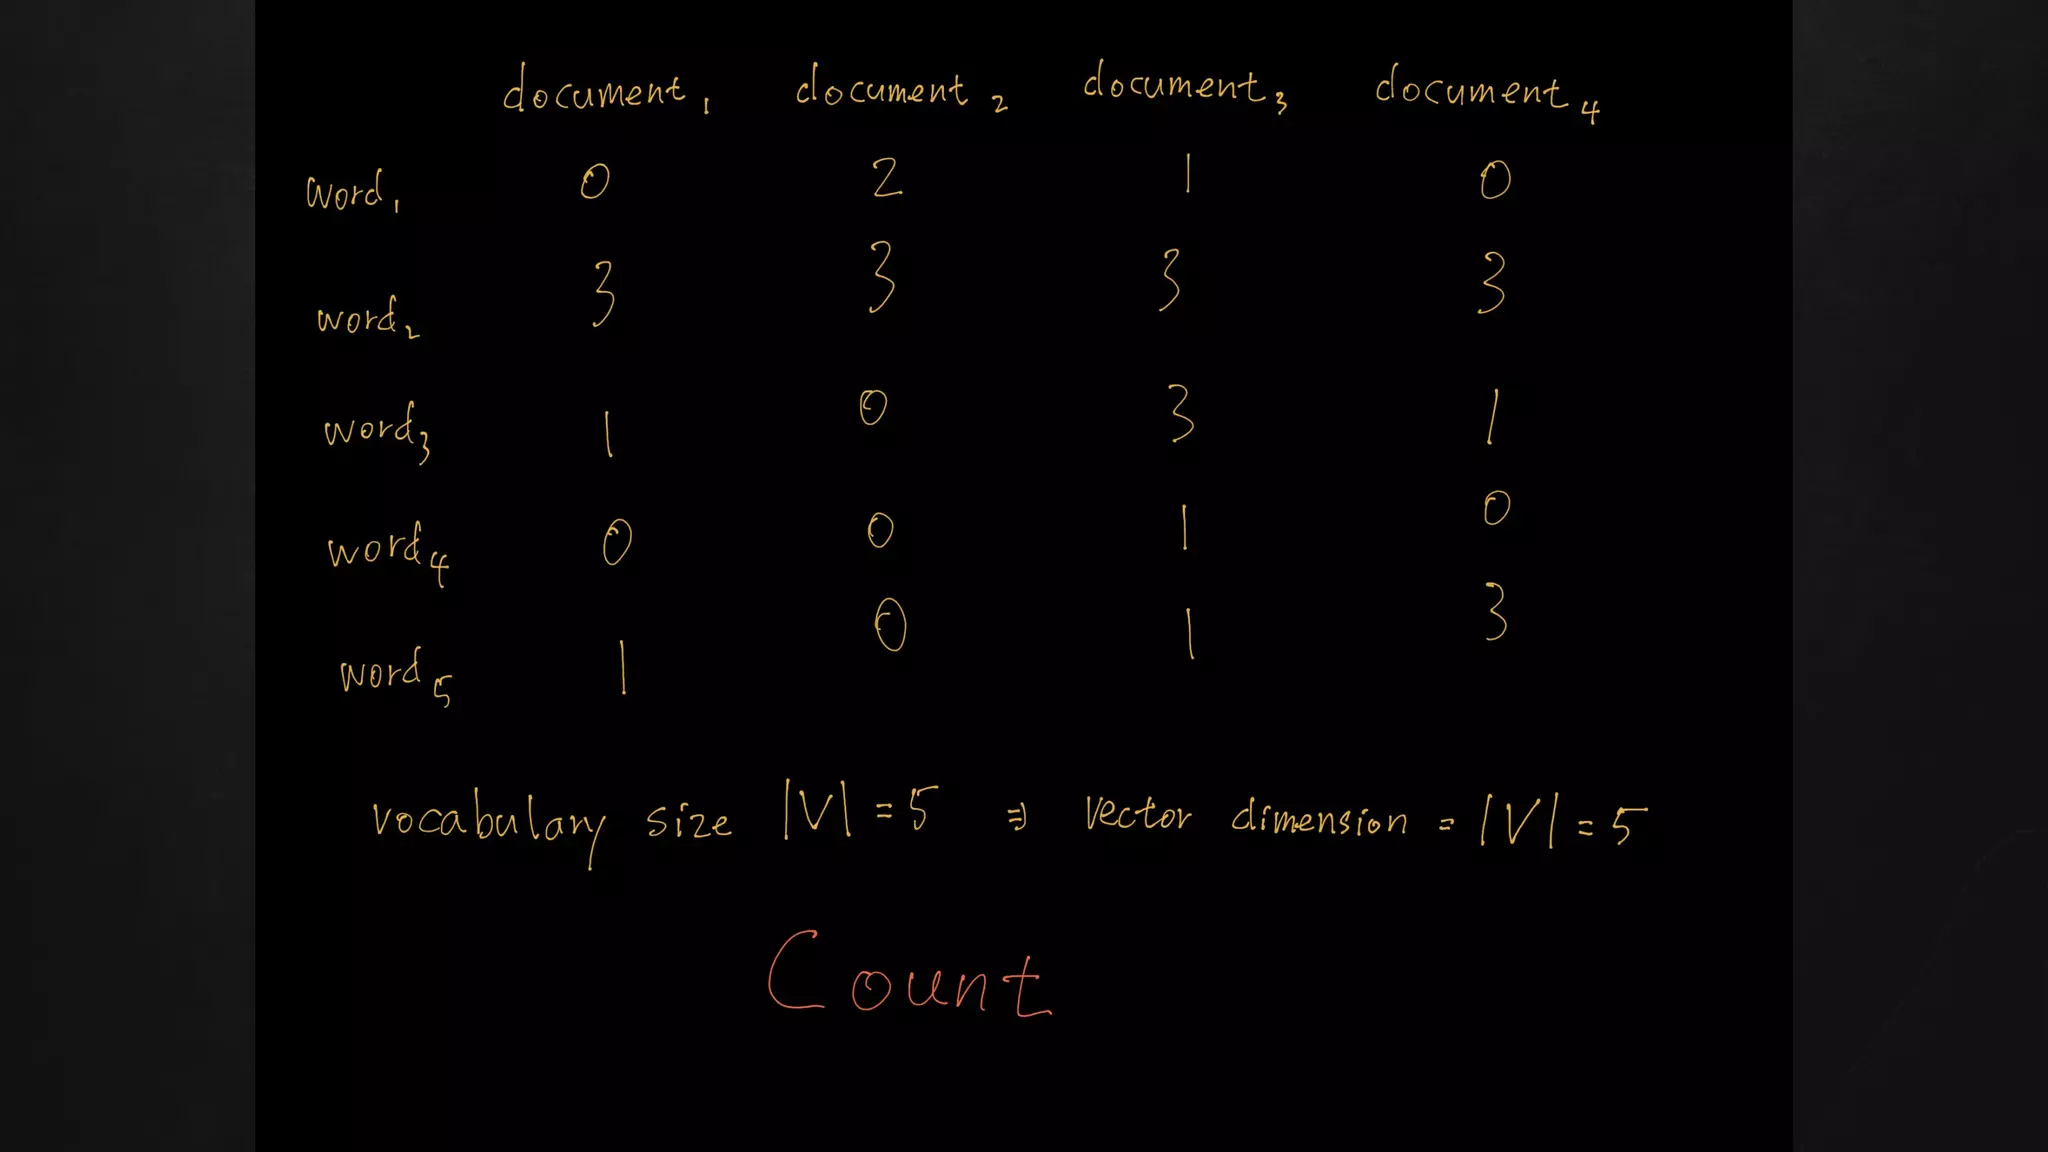 document₁ document₂ document₃ document₄
word₁ 0 2 1 0
word₂ 3 3 3 3
word₃ 1 0 3 1
word₄ 0 0 1 0
word₅ 1 0 1 3
vocabulary size |V| = 5 ⇒ vector dimension = |V| = 5
Count